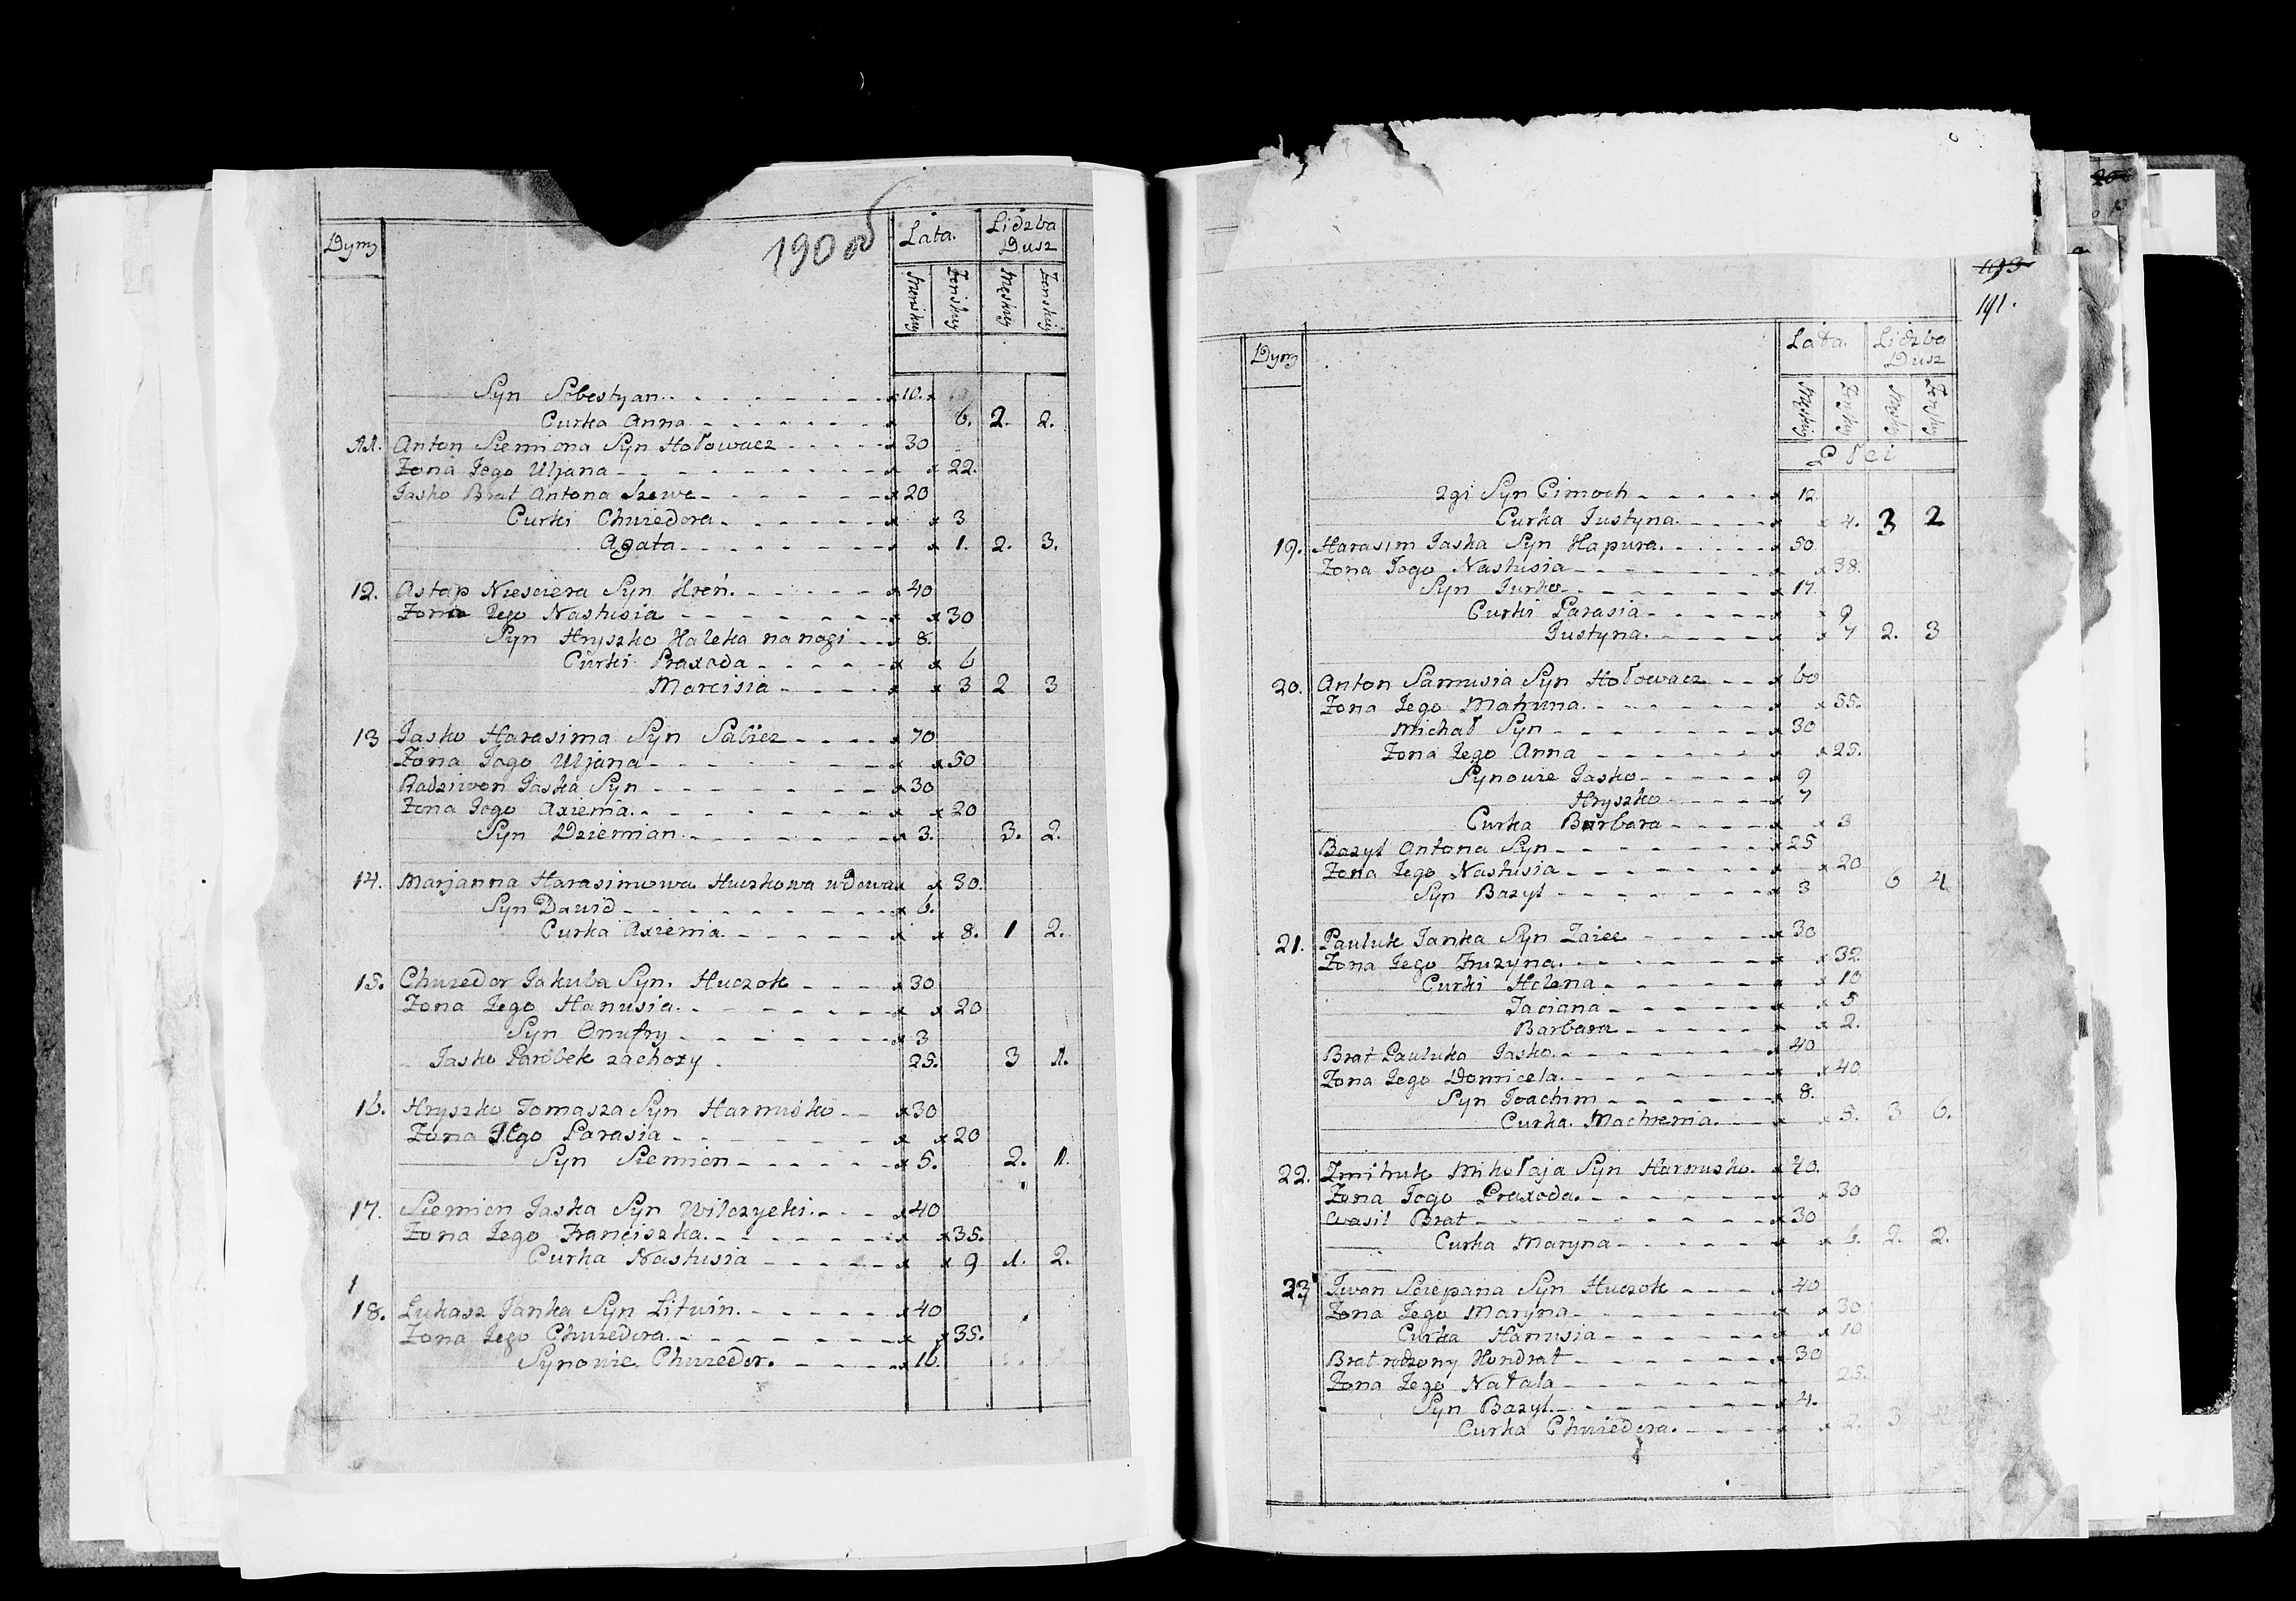 190 об
Dymy
Lata.
Lidzba Dusz
Męskiey
Żeńskiey
Męskiey
Żeńskiey
Syn Sebestyan 10.
Curka Anna 6. 2. 2.
11. Anton Siemiona Syn Hołowacz 30
Żona Jego Uljana 22.
Jasko Brat Antona Szewc 20
Curki Chwiedora 3
Agata 1. 2. 3.
12. Astap Niesciera Syn Hreń 40
Żona Jego Nastusia 30
Syn Hryszko Kaleka na nogi 8.
Curki Praxeda 6
Marcisia 3 2 3
13 Jasko Harasima Syn Sabicz 70
Żona Jego Uljana 50
Radziwon Jaska Syn 30
Żona Jego Axienia 20
Syn Dziemian 3. 3. 2.
14. Marjanna Harasimowa Huczkowa wdowa 30.
Syn Dawid 6.
Curka Axienia 8. 1 2.
15. Chwiedor Jakuba Syn Huczok 30
Żona Jego Hanusia 20
Syn Onufry 3
Jasko Parobek zachoży 25. 3 1.
16. Hryszko Tomasza Syn Harmuśko 30
Żona Jego Parasia 20
Syn Siemion 5. 2. 1.
17. Siemion Jaska Syn Wilczycki 40
Żona Jego Franciszka 35.
Curka Nastusia 9 1. 2.
18. Łukasz Janka Syn Litwin 40
Żona Jego Chwiedora 35.
Synowie Chwiedor 16
193
191.
Dymy
Lata.
Lidzba Dusz
Męskiey
Żeńskiey
Męskiey
Żeńskiey
Płci
2gi Syn Cimoch 12
Curka Justyna 4. 3 2
19. Harasim Jaska Syn Hapura 50
Żona Jego Nastusia 38.
Syn Jurko 17
Curki Parasia 9
Justyna 7 2. 3
20. Anton Samusia Syn Hołowacz 60
Żona Jego Matruna 55.
Michał Syn 30
Żona Jego Anna 25.
Synowie Jasko 9
Hryszko 7
Curka Barbara 3
Bazyl Antona Syn 25
Żona Jego Nastusia 20
Syn Bazyl 3 6 4
21. Pauluk Janka Syn Zaiec 30
Żona Jego Fruzyna 32.
Curki Helena 10
Taciana 5
Barbara 2.
Brat Pauluka Jasko 40
Żona Jego Domicela 40
Syn Joachim 8.
Curka Machrenia 5. 3 6.
22. Zmitruk Mikołaja Syn Harmusko 40.
Żona Jego Praxeda 30
Wasil Brat 30
Curka Maryna 6. 2. 2.
23 Jwan Sciepana Syn Huczok 40
Żona Jego Maryna 30
Curka Hanusia 10
Brat rodzony Kondrat 30
Żona Jego Natala 25.
Syn Bazyl 4.
Curka Chwiedora 2. 3